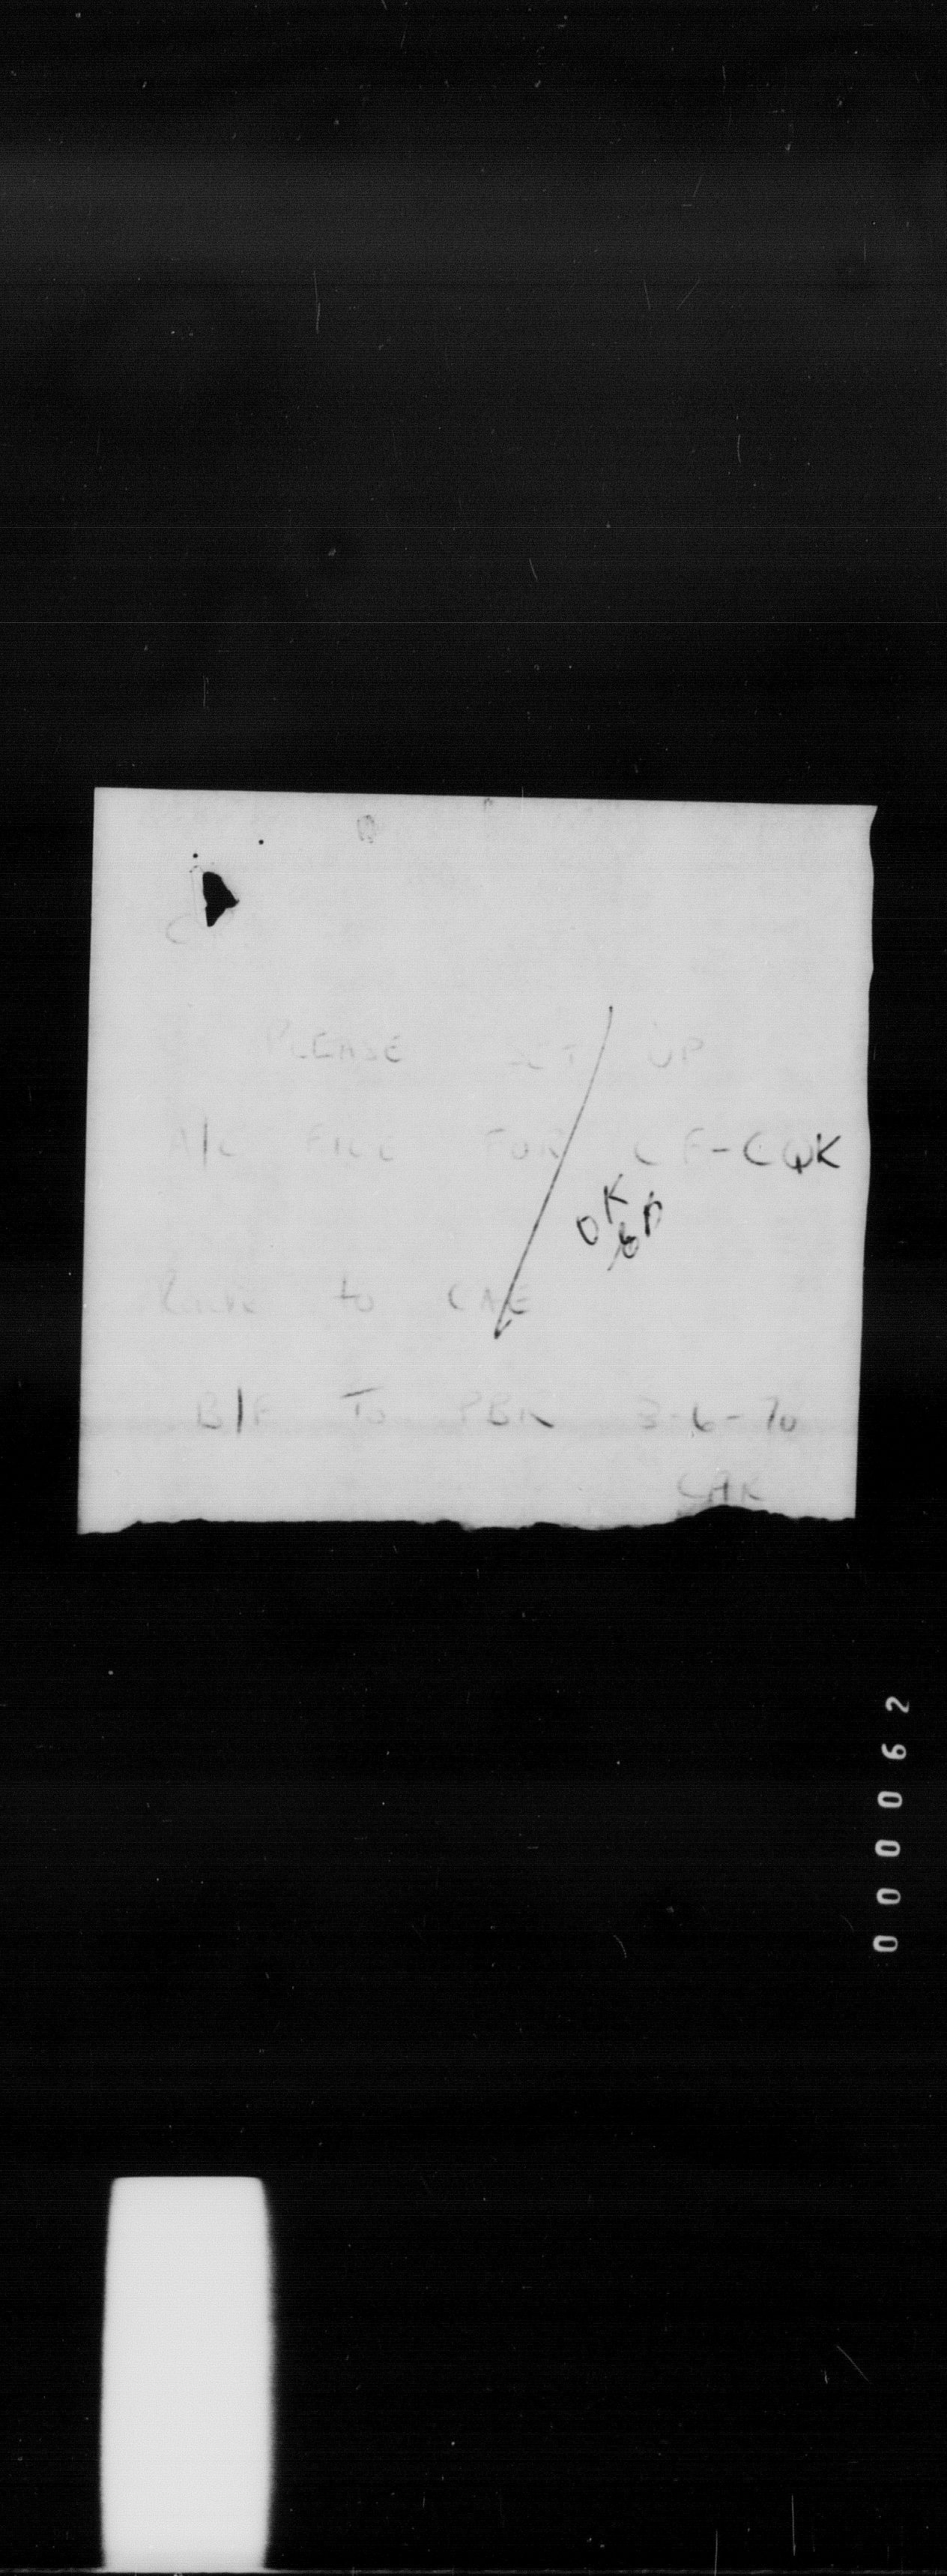 PLEASE SET UP
A/C FILE FOR CF-CQK
OK
to CAE
B/F To PBR 3-6-70
CAR
000062